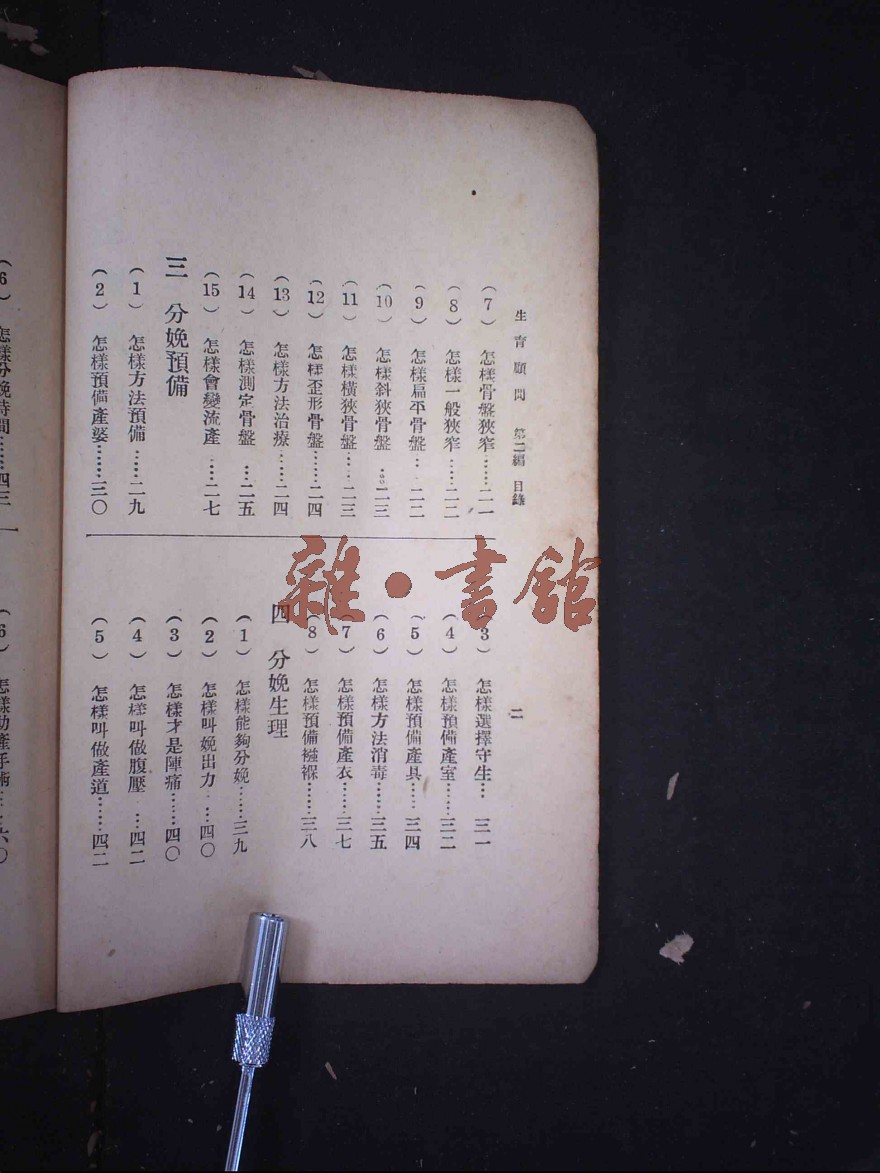 生育顧問 第二編 目錄
二
(7) 怎樣骨盤狹窄……二一
(8) 怎樣一般狹窄……二二
(9) 怎樣扁平骨盤…二二
(10) 怎樣斜狹骨盤…二三
(11) 怎樣橫狹骨盤…二三
(12) 怎樣歪形骨盤……二四
(13) 怎樣方法治療……二四
(14) 怎樣測定骨盤…二五
(15) 怎樣會變流產…二七
三 分娩預備
(1) 怎樣方法預備……二九
(2) 怎樣預備產婆……三〇
(3) 怎樣選擇守生…三一
(4) 怎樣預備產室……三二
(5) 怎樣預備產具……三四
(6) 怎樣方法消毒……三五
(7) 怎樣預備產衣……三七
(8) 怎樣預備襁褓……三八
四 分娩生理
(1) 怎樣能夠分娩……三九
(2) 怎樣叫娩出力…四〇
(3) 怎樣才是陣痛……四〇
(4) 怎樣叫做腹壓…四二
(5) 怎樣叫做產道……四二
6) 怎樣分娩時間……四三
6) 怎樣助產手術……六〇
雜·書館